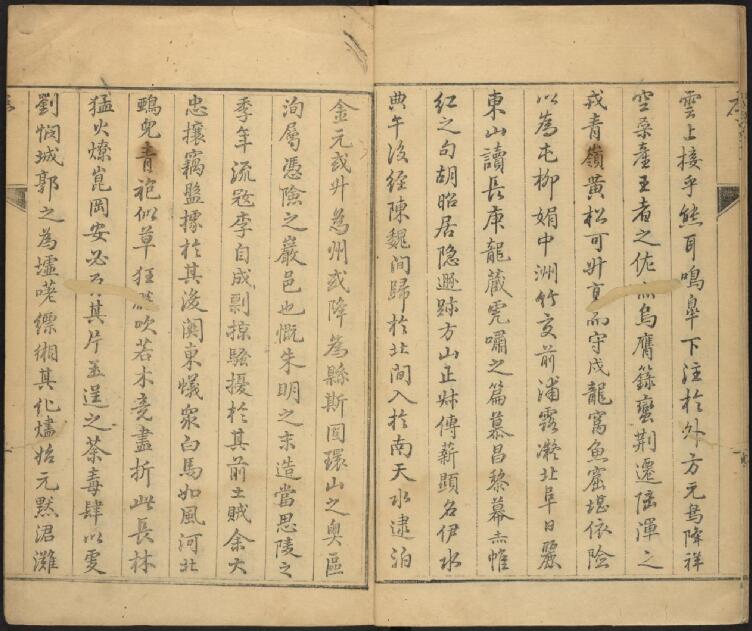 雲上接乎熊耳鳴皐下注於外方元鳥降祥
空桑產王者之佐烏膺籙蠻荆遷陸渾之
戎青嶺黃松可升夏而守戍龍窩魚窟堪依險
以為屯柳娟中洲竹交前浦露凝北阜日麗
東山讀長庚龍藏虎嘯之篇慕昌黎幕赤帷
紅之句胡昭居隐遯跡方山正妹傳薪顕名伊水
典午後經陳魏间歸於北间入於南天水逮泊
金元或升為州或降為縣斯固環山之奥區
洵屬憑險之巖邑也慨朱明之末造當思陵之
季年流冦李自成剽掠騷擾於其前土賊余大
忠攘竊盬據於其後関東蟻眾白馬如風河北
鵶兒青袍似草狂吹若木竞盡折此長林
猛火燎崑岡安必其片玉逞之荼毒肆以虔
劉悯城郭之為墟嗟縹緗其化燼始元黙涒灘